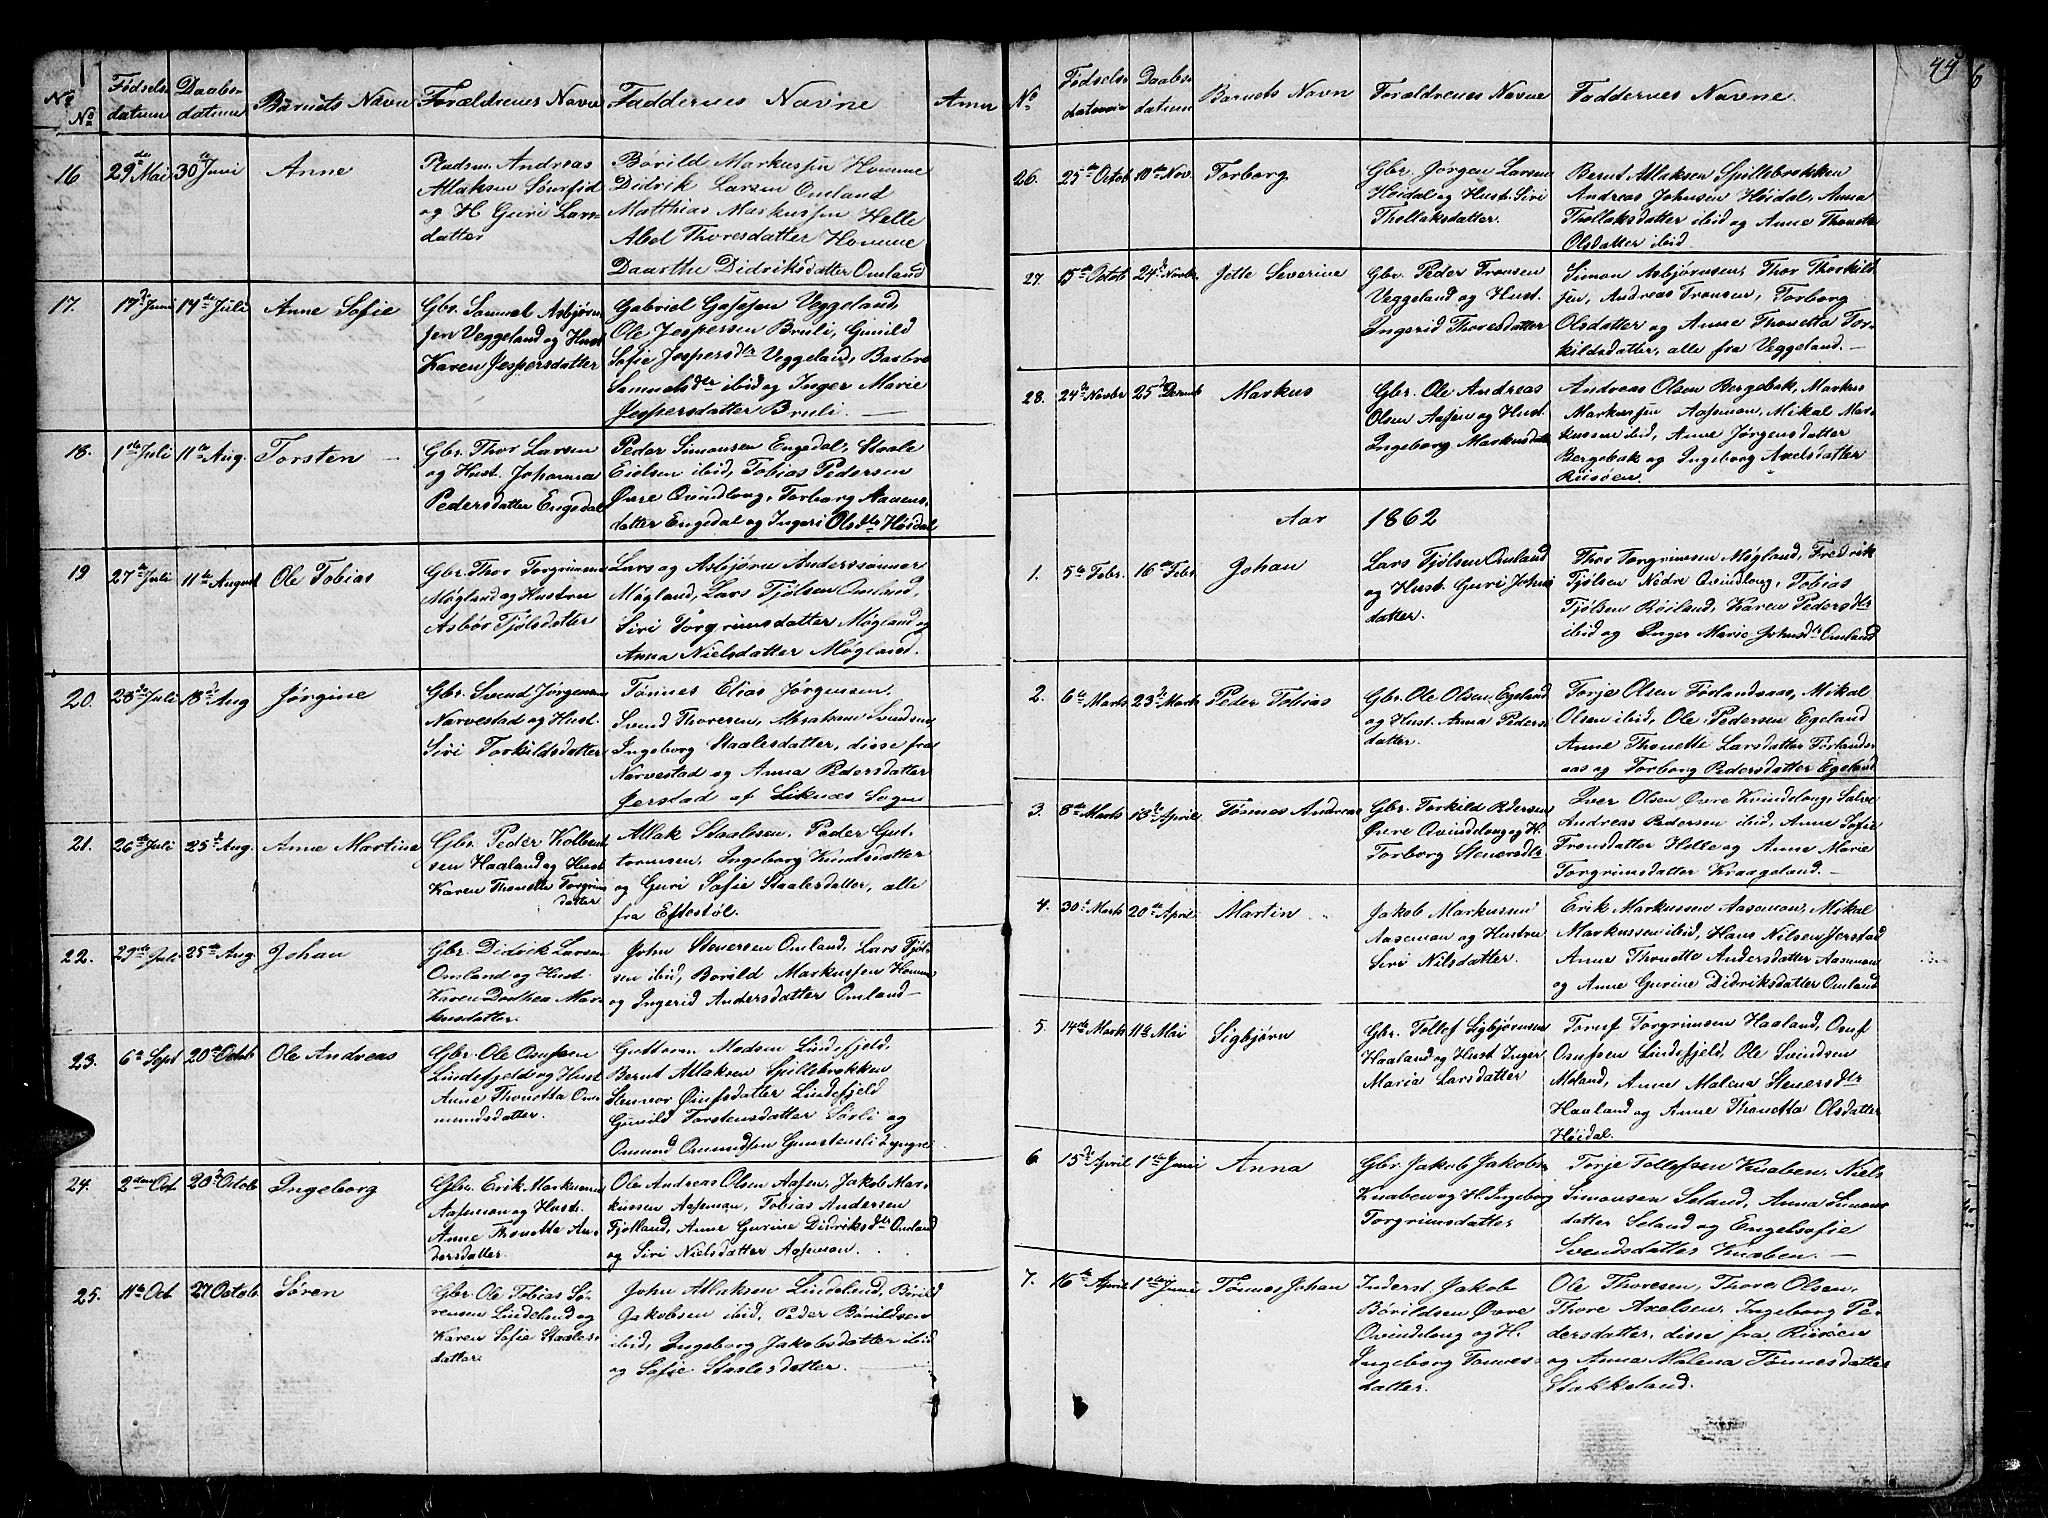 No
No Fødsels-
datum
Daabs-
datum
Barnets Navn
Forældrenes Navne
Faddernes Navne
Anm
16 29de Mai 30te Juni Anne
Pladsm. Andreas
Atlaksen
og H. Guri Lars-
datter
Børild Markussen Homme
Didrik Larsen Omland
Matthias Markussen Helle
Abel Thoresdatter Homme
Daarthe Didriksdatter Omland
17. 17de Juni 14de Juli Anne Sofie
Gbr. Samuel Asbjørn-
sen Veggeland og Hust.
Karen Jespersdatter
Gabriel Gasesen Veggeland,
Ole Jespersen Bruli, Gunild
Sofie Jespersdtr Veggeland, Barbro
Samuelsdtr ibid og Inger Marie
Jespersdatter Bruli. —
18. 1ste Juli 11te Aug. Torsten —
Gbr. Thor Larsen
og Hust. Johanna
Pedersdatter Engedal
Peder Simonsen Engedal, Staale
Eielsen ibid, Tobias Pedersen
Øvre Qvindlong, Torborg Aanens-
datter Engedal og Ingeri Olsdtr Høidal
19 27de Juli 11te August Ole Tobias
Gbr. Thor Torgrimsen
Møgland og Hustru
Asbør Tjølsdatter
Lars og Asbjørn Anderssønner
Møgland, Lars Tjølsen Omland,
Siri Torgrimsdatter Møgland og
Anna Nielsdatter Møgland.
20. 28de Juli 18de Aug Jørgine
Gbr. Svend Jørgensen
Narvestad og Hust.
Siri Torkildsdatter
Tønnes Elias Jørgensen,
Svend Thoresen, Abraham Svendsen
Ingeborg Staalesdatter, disse fra
Narvestad og Anna Pedersdatter
Øierstad af Liknæs Sogn
21. 26de Juli 25de Aug. Anne Martine
Gbr. Peder Kolbein-
sen Haaland og Hust
Karen Thonette Torgrims
datter
Atlak Staalesen, Peder Gut-
tormsen, Ingeborg Knudsdatter
og Guri Sofie Staalesdatter, alle
fra Eftestøl.
22. 29de Juli 25de Aug Johan
Gbr. Didrik Larsen
Omland og Hust.
Karen Dorthea Mar-
kusdatter.
John Steversen Omland, Lars Tjøl-
sen ibid, Borild Markussen Homme
og Ingerid Andersdatter Omland —
23. 6te Sept 20de Octob Ole Andreas
Gbr. Ole Osufsen
Lindefjeld og Hust
Anne Thonetta Om-
mundsdatter.
Guttorm Madsen Lindefjeld,
Bernt Atlaksen Spillebrokken
Stenvor Osufsdatter Lindefjeld
Gunild Torstensdatter Sørli og
Omund Omundsen Gunstensli Lyngre
24. 2den Oct. 20de Octob Ingeborg
Gbr. Erik Markussen
Aasemon og Hust.
Anne Thonette An-
dersdatter.
Ole Andreas Olsen Aasen, Jakob Mar-
kussen Aasemon, Tobias Andersen
Fjotland, Anne Gurine Didriksdtr Omland
og Siri Nielsdatter Aasemon.
25. 11te Oct. 27 Octob. Søren
Gbr Ole Tobias Sø-
rensen Lindeland og
Karen Sofie Staales-
datter.
John Atlaksen Lindeland, Børild
Jakobsen ibid, Peder Børildsen
ibid, Ingeborg Jakobsdatter ibid
og Sofie Staalesdatter. —
44
No
Fødsels-
datum
Daabs-
datum
Barnets Navn
Forældrenes Navne
Faddernes Navne.
26. 25de Octob 10de Nov. Torborg
Gbr. Jørgen Larsen
Høidal og Hust. Siri
Thollaksdatter.
Bernt Atlaksen Spillebrokken
Andreas Johnsen Høidal, Anna
Thollaksdatter ibid og Anne Thonette
Olsdatter ibid.
27. 15de Octob 24de Novbr. Jette Severine
Gbr. Peder Tronsen
Veggeland og Hust.
Ingerid Thoresdatter
Simon Asbjørnsen, Thor Thorkild-
sen, Andreas Tronsen, Torborg
Olsdatter og Anne Thonetta Tor-
kildsdatter, alle fra Veggeland. —
28. 24de Novbr 25de Decmb Markus
Gbr. Ole Andreas
Olsen Aasen og Hust.
Ingeborg Markusdatter
Andreas Olsen Bergebak, Markus
Markussen Aasemon, Mikal Mar-
kussen ibid, Anne Jørgensdatter
Bergebak og Ingeborg Axelsdatter
Risøen.
Aar 1862
1. 5te Febr. 16de Febr. Johan
Lars Tjølsen Omland
og Hust. Guri Johns
datter.
Thor Torgrimsen Møgland, Fredrik
Tjølsen Nedre Qvindlong, Tobias
Tjølsen Røiland, Karen Pedersdtr
ibid og Inger Marie Johnsdtr Omland
2. 6te Marts 23de Marts Peder Tobias
Gbr. Ole Olsen Egeland
og Hust. Anna Peders-
datter.
Torje Olsen Førlandsaas, Mikal
Olsen ibid, Ole Pedersen Egeland
Anne Thonette Larsdatter Førlands-
aas og Torborg Pedersdatter Egeland
3. 8de Marts 13de April Tønnes Andreas
Gbr. Torkild Pedersen
Øvre Qvindlong og H.
Torborg Stenersdtr.
Iver Olsen Øvre Kvindlong, Salve
Andreas Pedersen ibid, Anne Sofie
Tronsdatter Helle og Anne Marie
Torgrimsdatter Kraageland. —
4. 30te Marts 20de April Martin
Jakob Markussen
Aasemon og Hustru
Siri Nilsdatter.
Erik Markussen Aasemon, Mikal
Markussen ibid, Hans Nilsen Jerstad
Anne Thonette Andersdatter Aasemon
og Anne Gurine Didriksdatter Omland
5. 14de Marts 11te Mai Sigbjørn
Gbr. Tollef Sigbjørnsen
Haaland og Hust Inger
Maria Larsdatter
Toruf Torgrimsen Haaland, Osuf
Osufsen Lindefjeld, Ole Svendsen
Moland, Anne Malena Stenersdtr
Haaland og Anne Thonetta Olsdatter
Høidal.
6 15de April 1ste Juni Anna
Gbr. Jakob Jakobsen
Knaben og H. Ingeborg
Torgrimsdatter
Torje Tollefsen Knaben, Niels
Simonsen Soland, Anna Simons-
datter Soland og Engelsofie
Svendsdatter Knaben. —
7. 16de April 1ste Juni Tønnes Johan
Inderst. Jakob
Børildsen Øvre
Qvindlong og H.
Ingeborg Tønnes-
datter.
Ole Thoresen, Thore Olsen,
Thore Axelsen, Ingeborg Pe-
dersdatter, disse fra Risøen
og Anna Malena Tønnesdatter
Stakkeland.